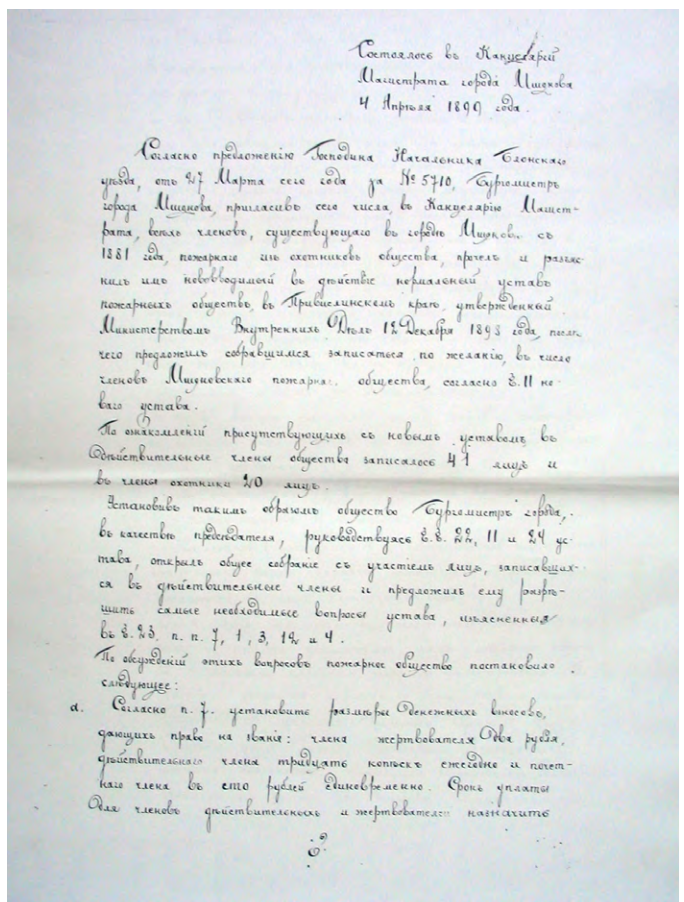 Состоялось въ Канцелярій
Магистрата города Мщонова
4 Апрѣля 1899 года.
Согласно предложенію Господина Начальника Блонскаго
уѣзда, отъ 27 Марта сего года за № 5710, Бургомистръ
города Мщонова, пригласивъ сего числа, въ Канцелярію Магист-
рата, всѣхъ членовъ, существующаго въ городѣ Мщонов. съ
1881 года, пожарнаго изъ охотниковъ общества, прочелъ и разъяс
нилъ имъ нововводимый въ дѣйствіе нормальный уставъ
пожарныхъ обществъ, въ Привислинскомъ краѣ, утвержденный
Министерствомъ Внутреннихъ Дѣлъ 12 Декабря 1898 года, послѣ
чего предложилъ собравшимся записаться, по желанію, въ число
членовъ Мщоновскаго пожарна.. общества, согласно §. 11 но-
ваго устава.
По ознакомленій присутствующихъ съ новымъ уставомъ въ
дѣйствительные члены общества записалось 41 лицъ и
въ члены охотники 20 лицъ.
Установивъ такимъ образомъ общество Бургомистръ города,
въ качествѣ предсѣдателя, руководствуясь §.§. 22, 11 и 24 ус-
тава, открылъ общее собраніе съ участіемъ лицъ, записавших-
ся въ дѣйствительные члены и предложилъ ему разрѣ-
шить самые необходимые вопросы устава, изъясненныя
въ §. 23, п. п. 7, 1, 3, 12 и 4.
По обсужденій этихъ вопросовъ пожарное общество постановило
слѣдующее:
а. Согласно п. 7. установить размѣры денежныхъ взносовъ,
дающихъ право на званіе: члена жертвователя два рубля,
дѣйствительнаго члена тридцать копѣекъ ежегодно и почет-
наго члена въ сто рублей единовременно. Срокъ уплаты
для членовъ дѣйствительныхъ и жертвователей назначить